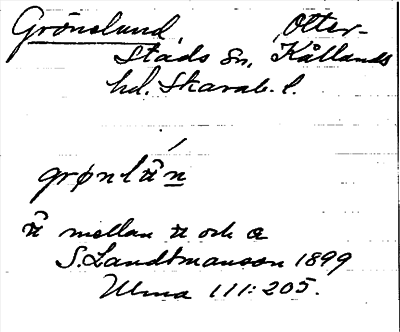 Grönslund, Otter-
stads sn, Kållands
hd. Skarab. l.
grønlän
mellan och
S. Landtmanson 1899
Ulma 111:205.